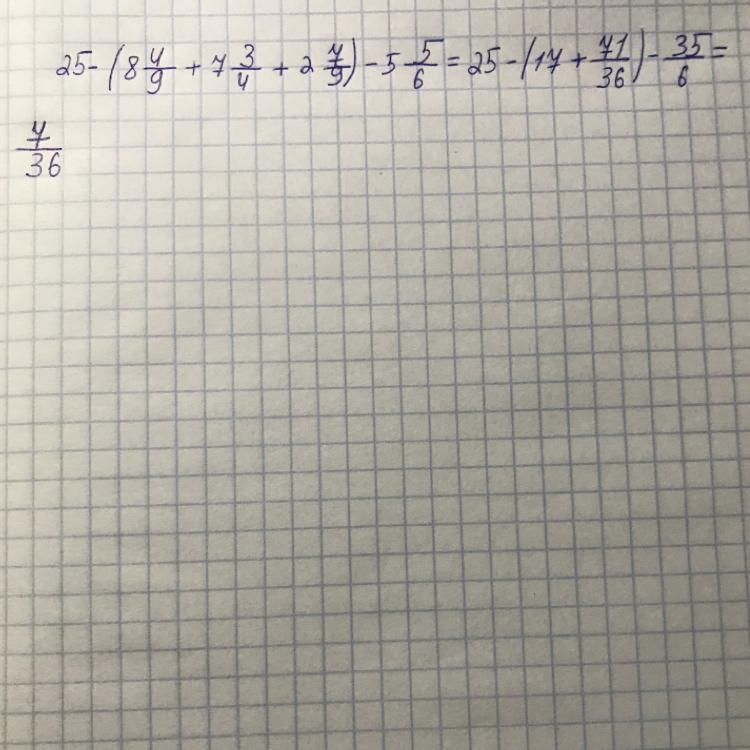 25 - (8 4/9 + 7 3/4 + 2 7/9) - 5 5/6 = 25 - (17 + 71/36) - 35/6 =
7/36